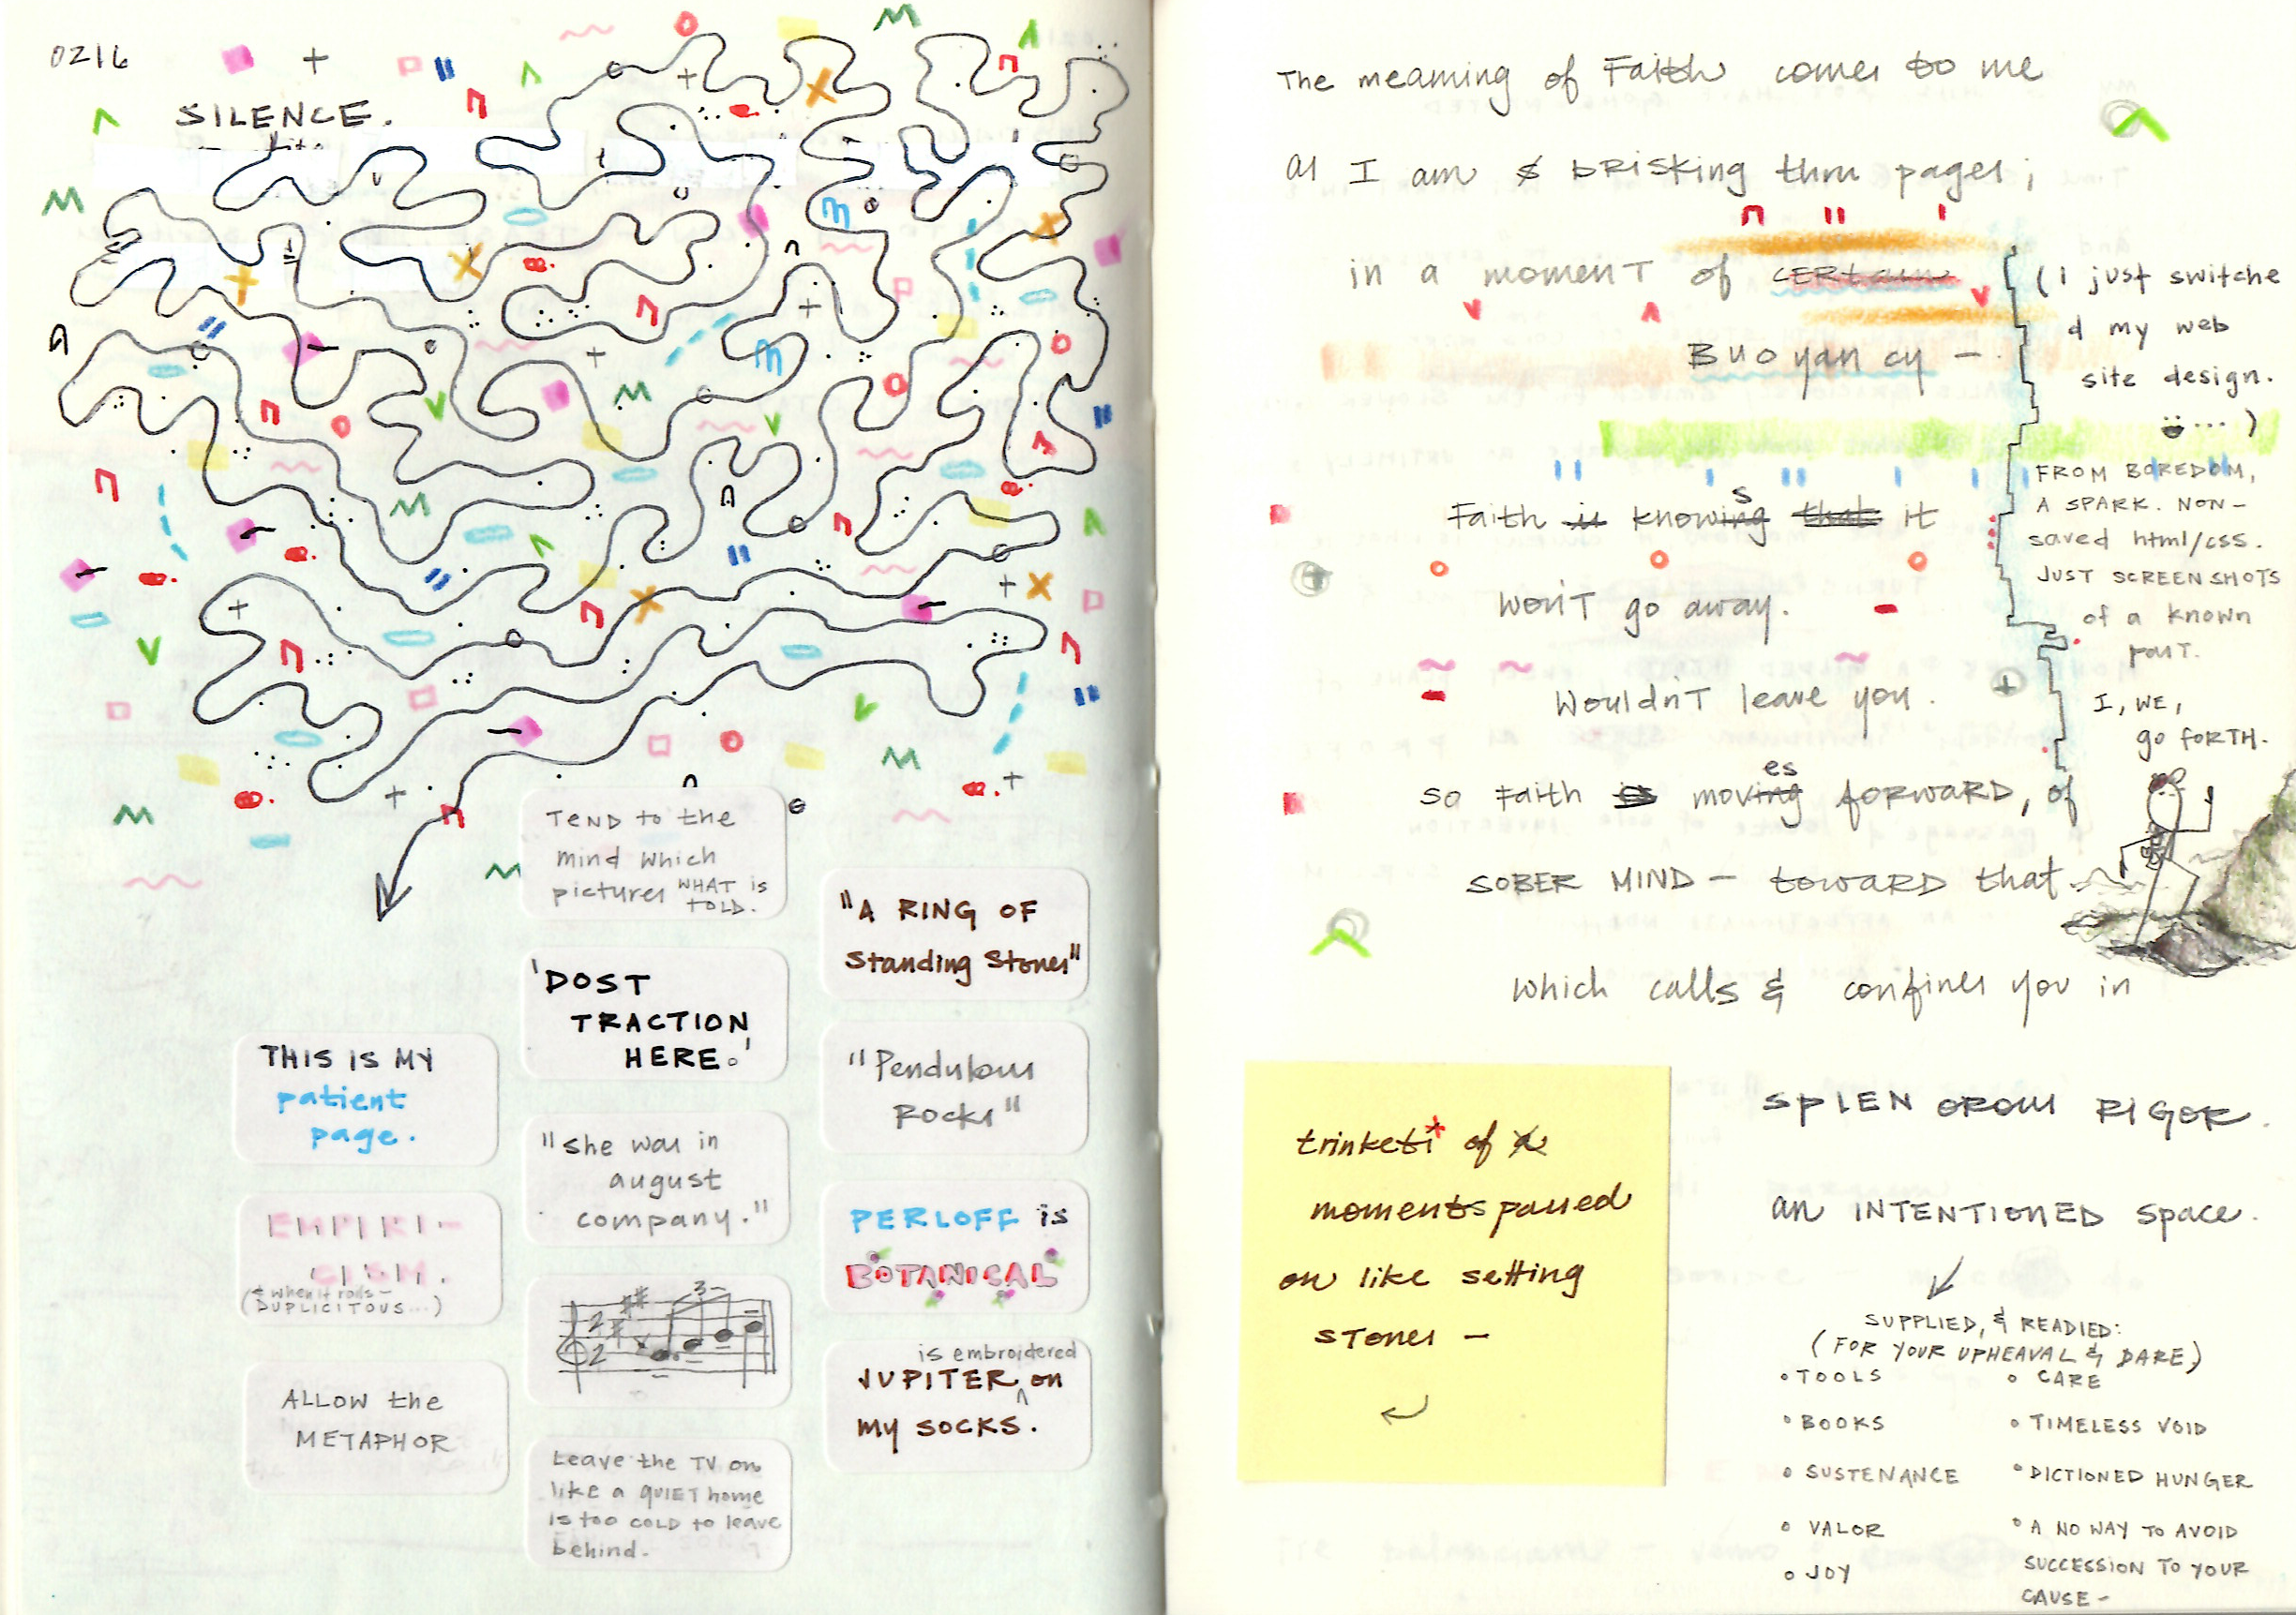 0216
SILENCE.
TEND to the
mind which
pictures WHAT is
TOLD.
'DOST
TRACTION
HERE.'
"She was in
august
company."
3
2
2
Leave the TV on
like a QUIET home
is too COLD to leave
behind.
THIS IS MY
patient
page.
EMPIRI-
CISM.
(& when it rails-
DUPLICITOUS...)
ALLOW the
METAPHOR
"A RING OF
Standing Stones"
"Pendulous
Rocks"
PERLOFF is
BOTANICAL
is embroidered
JUPITER ^ on
my socks.
The meaning of Faith comes to me
as I am brisking thru pages;
in a moment of certain
Buoyancy -
Faith is knowing s that it
won't go away.
Wouldn't leave you.
so Faith is moving es forward, of
SOBER MIND - toward that
which calls & confines you in
SPLENDOROUS RIGOR.
an INTENTIONED space.
(I just switche
d my web
site design.
... )
FROM BOREDOM,
A SPARK. NON-
saved html/css.
JUST SCREENSHOTS
of a known
past.
I, WE,
go FORTH.
trinkets* of a
moments passed
on like setting
stones -
SUPPLIED, & READIED:
(FOR YOUR UPHEAVAL & DARE)
• TOOLS
• BOOKS
• SUSTENANCE
• VALOR
• JOY
• CARE
• TIMELESS VOID
• DICTIONED HUNGER
• A NO WAY TO AVOID
SUCCESSION TO YOUR
CAUSE -